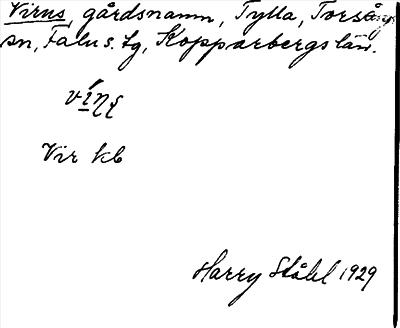 Virus, gårdsnamn, Tylla, Torsång
sn, Falu s. tg, Kopparbergs län.
Vir kb
Harry Ståhl 1929